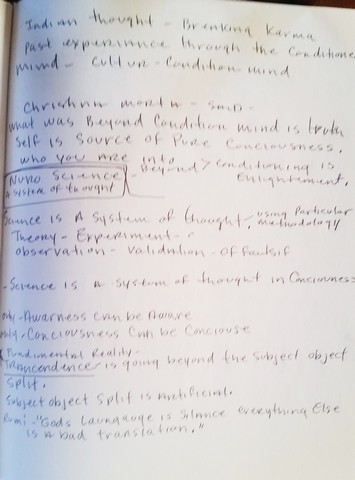 Indian thought - Breaking Karma
Past experiance through the Conditione
mind - Cultur - Condition mind
Chrishna morta - said -
what was Beyond Condition mind is truth
Self is Source of Pure Conciousness.
who you are into
Nuro Science - Beyond > Conditioning is
A system of thought Enlightement.
Science is A System of thought, using Particular methodology
Theory - Experiment -
observation - Validation - Of
- Science is a system of thought in Conciouness
only - Awarness can be Aware
only - Conciousness Can be Conciouse
Fundimental Reality -
Transcendence is going beyond the subject object
Split.
Subject object Split is Artificial.
Rumi - "Gods Laungauge is Silance everything Else
is a bad translation."